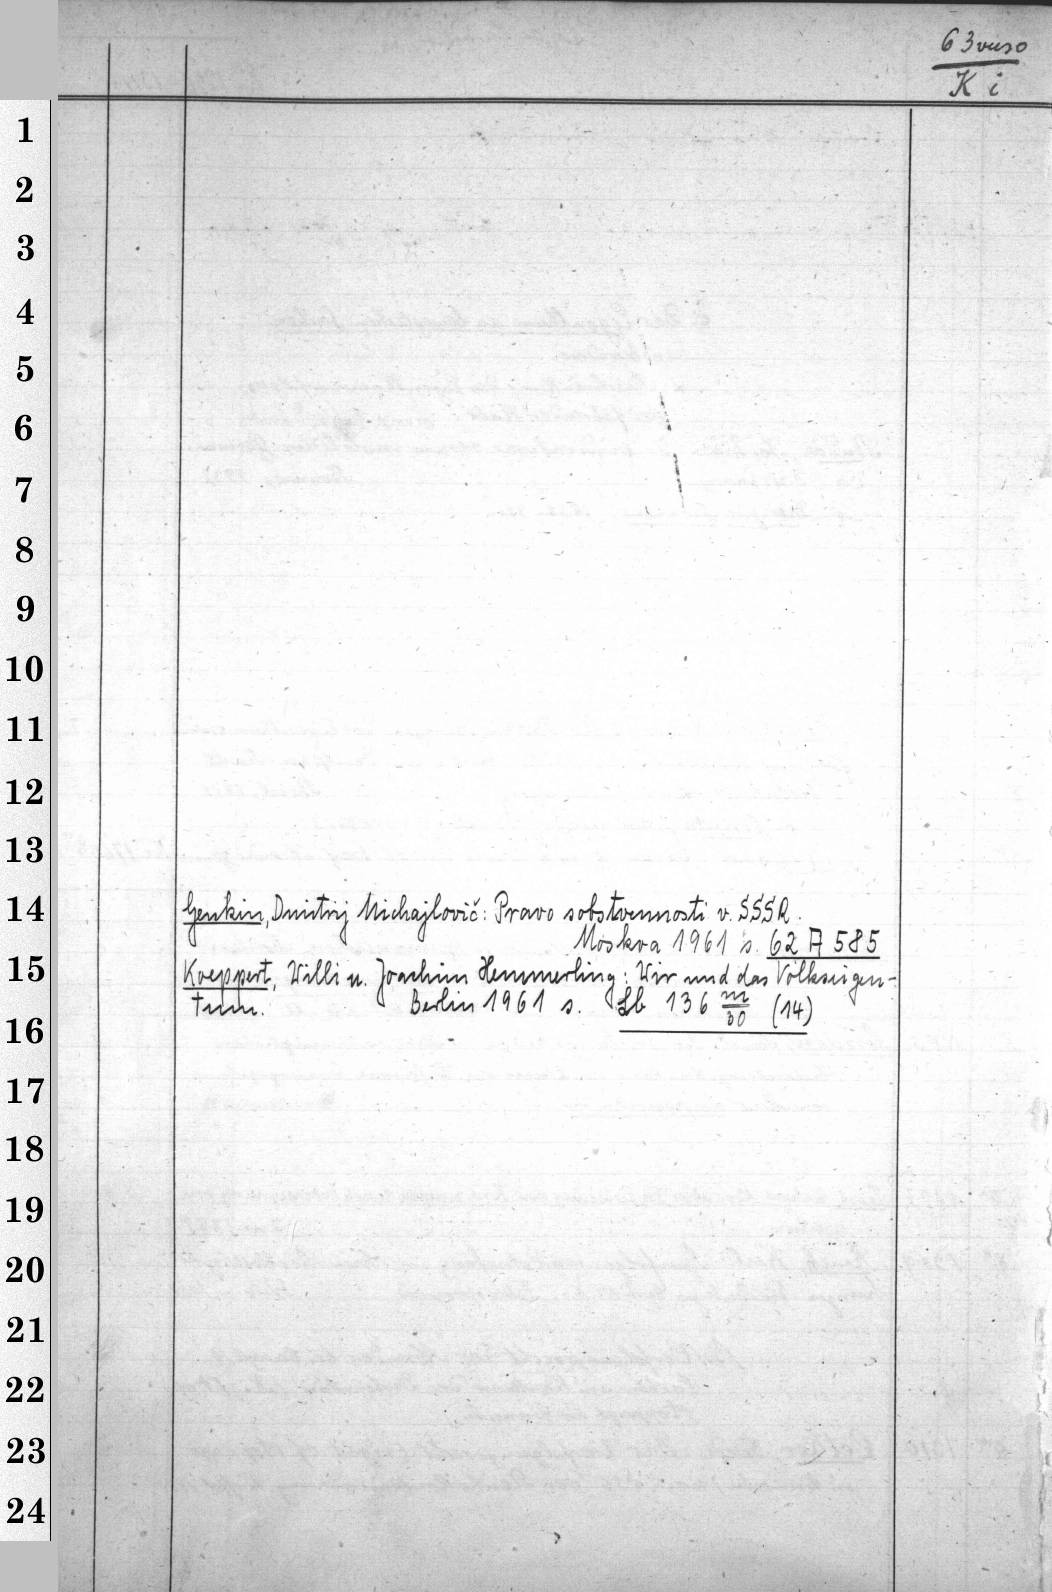 63 vuso
K i
1
2
3
4
5
6
7
8
9
10
11
12
13
14
Genkin, Dmitrij Michajlovič: Pravo sobstvennosti v. SSSR.
Moskva 1961 s. 62 A 585
15
Koeppert, Willi u. Joachim Hemmerling: Wir und das Volkseigen-
tum. Berlin 1961 s. Lb 136 m/30 (14)
16
17
18
19
20
21
22
23
24